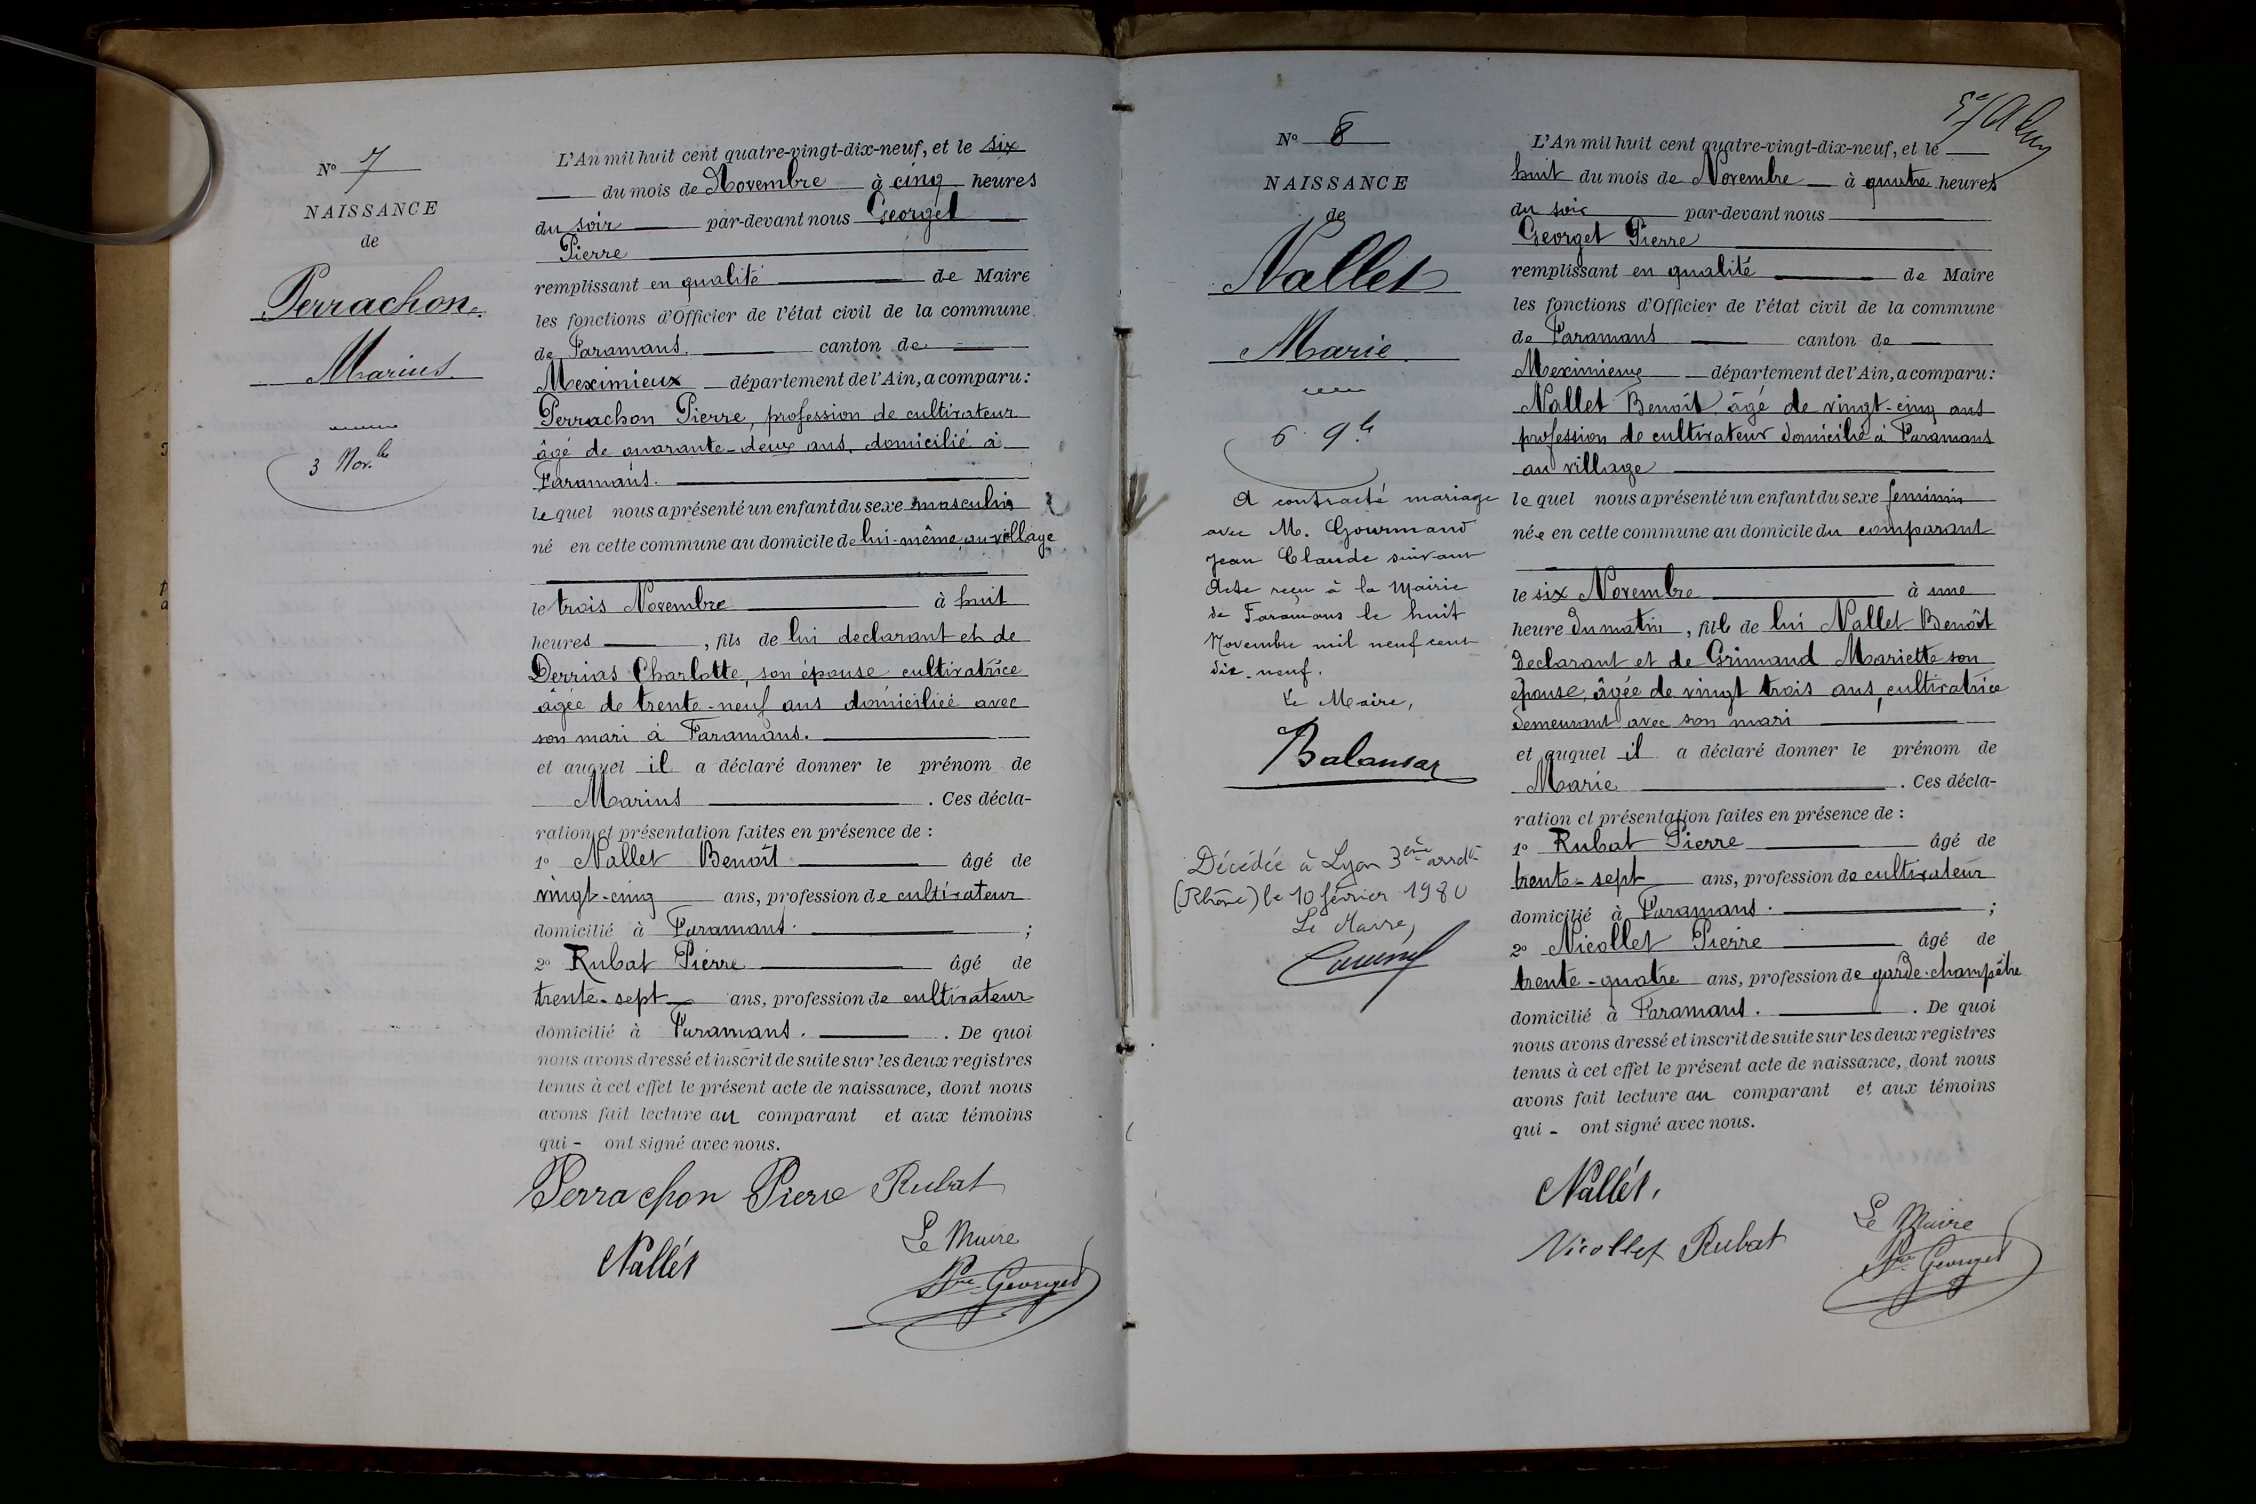 N° 7
NAISSANCE
de
Perrachon
Marius
3 Nov.bre
L'An mil huit cent quatre-vingt-dix-neuf, et le six
du mois de Novembre à cinq heures
du soir par-devant nous Georget
Pierre
remplissant en qualité de Maire
les fonctions d'Officier de l'état civil de la commune
de Faramans. canton de
Meximieux département de l'Ain, a comparu :
Perrachon Pierre, profession de cultivateur
âgé de quarante-deux ans, domicilié à
Faramans.
lequel nous a présenté un enfant du sexe masculin
né en cette commune au domicile de lui-même au village
le trois Novembre à huit
heures , fils de lui declarant et de
Derrias Charlotte, son épouse cultivatrice
âgée de trente-neuf ans domiciliée avec
son mari à Faramans.
et auquel il a déclaré donner le prénom de
Marius . Ces décla-
ration et présentation faites en présence de :
1° Nallet Benoît âgé de
vingt-cinq ans, profession de cultivateur
domicilié à Faramans. ;
2° Rubat Pierre âgé de
trente-sept ans, profession de cultivateur
domicilié à Faramans. . De quoi
nous avons dressé et inscrit de suite sur les deux registres
tenus à cet effet le présent acte de naissance, dont nous
avons fait lecture au comparant et aux témoins
qui - ont signé avec nous.
Perrachon Pierre Rubat
Nallét
Le Maire
Pre Georget
N° 8
NAISSANCE
de
Nallet
Marie
6 9bre
A contracté mariage
avec M. Gourmand
Jean Claude suivant
Acte reçu à la Mairie
de Faramans le huit
Novembre mil neuf cent
dix-neuf.
Le Maire,
Décédée à Lyon 3ème arrdt
(Rhône) le 10 février 1980
Le Maire,
L'An mil huit cent quatre-vingt-dix-neuf, et le
huit du mois de Novembre à quatre heures
du soir par-devant nous
Georget Pierre
remplissant en qualité de Maire
les fonctions d'Officier de l'état civil de la commune
de Faramans canton de
Meximieux département de l'Ain, a comparu :
Nallet Benoît âgé de vingt-cinq ans
profession de cultivateur domicilié à Faramans
au village
lequel nous a présenté un enfant du sexe feminin
née en cette commune au domicile du comparant
le six Novembre à une
heure du matin , fille de lui Nallet Benoît
declarant et de Grimand Mariette son
épouse, âgée de vingt trois ans, cultivatrice
demeurant avec son mari
et auquel il a déclaré donner le prénom de
Marie . Ces décla-
ration et présentation faites en présence de :
1° Rubat Pierre âgé de
trente-sept ans, profession de cultivateur
domicilié à Faramans. ;
2° Nicollet Pierre âgé de
trente-quatre ans, profession de garde-champêtre
domicilié à Faramans. . De quoi
nous avons dressé et inscrit de suite sur les deux registres
tenus à cet effet le présent acte de naissance, dont nous
avons fait lecture au comparant et aux témoins
qui - ont signé avec nous.
Nallét.
Nicollet Rubat
Le Maire
Pre Georget